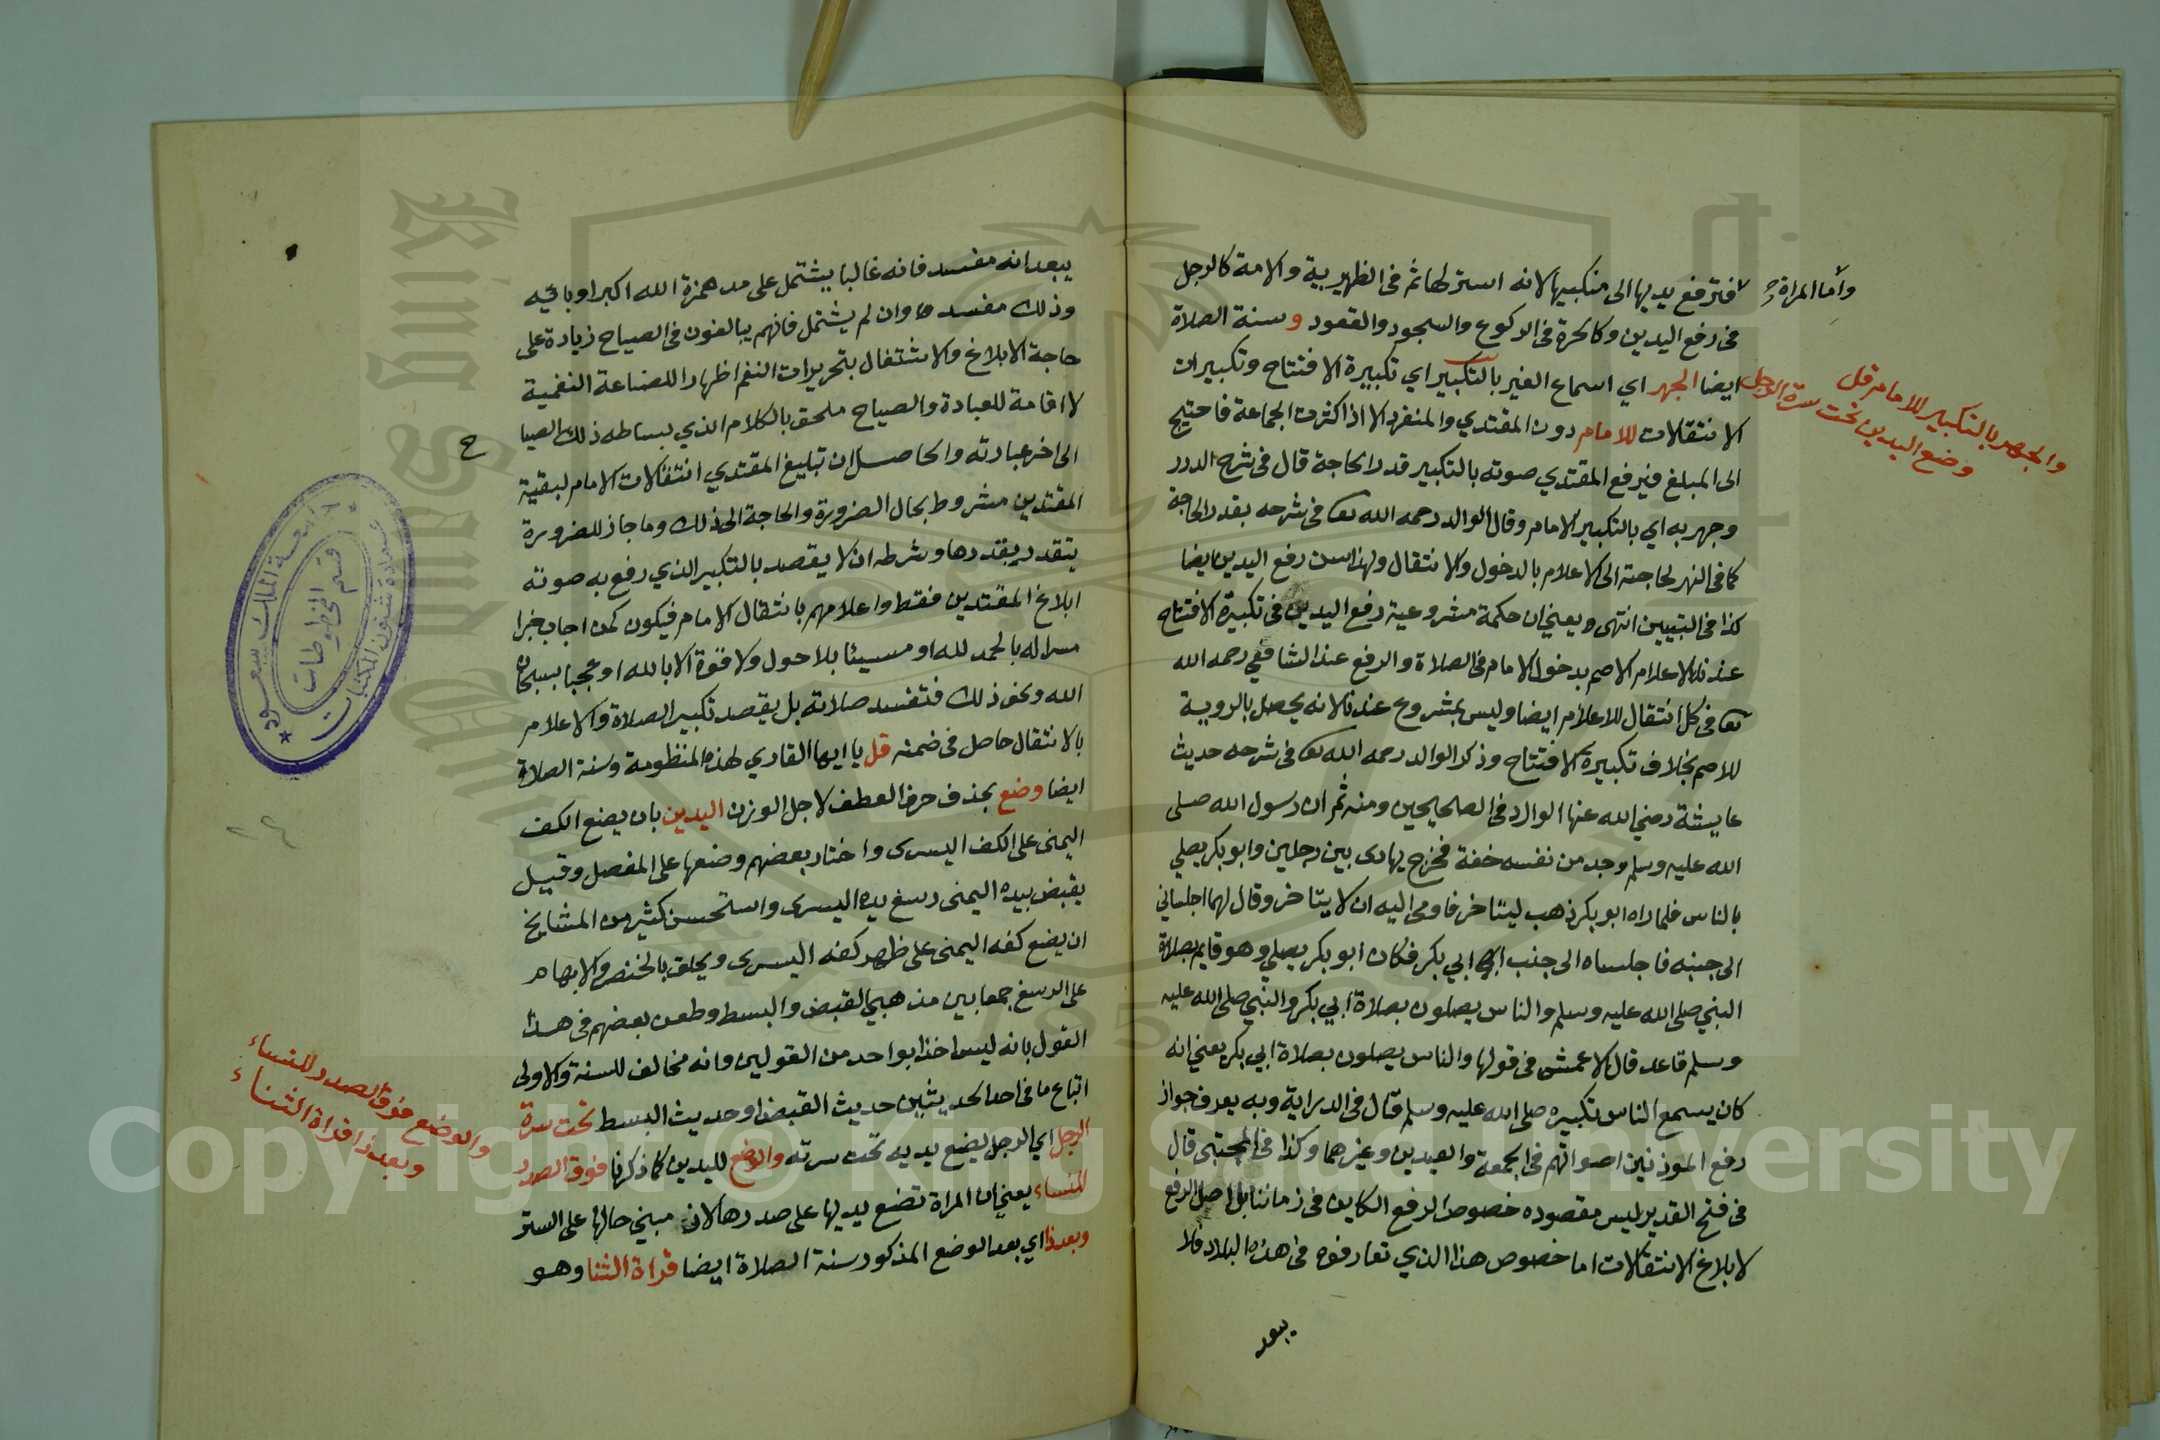 وأما المراة
فترفع يديها الى منكبيها لانه استر لها ثم فى الظهيرية والامة كالرجل
فى رفع اليدين وكالحرة فى الركوع والسجود والقعود وسنة الصلاة
ايضا الجهر اي اسماع الغير بالتكبير اي تكبيرة الافتتاح وتكبيرات
الانتقالات للامام دون المقتدي والمنفرد الا اذا كثرت الجماعة فاحتيج
الى المبلغ فيرفع المقتدي صوته بالتكبير قدر الحاجة قال فى شرح الدرر
وجهر به اي بالتكبير الامام وقال الوالد رحمه الله تعا فى شرحه بقدر الحاجة
كما فى النهر لحاجته الى الاعلام بالدخول والانتقال ولهذا سن رفع اليدين ايضا
كذا فى التبيين انتهى ويعني ان حكمة مشروعية رفع اليدين فى تكبيرة الافتتاح
عندنا الاعلام الاصم بدخول الامام فى الصلاة والرفع عند الشافعي رحمه الله
تعا فى كل انتقال للاعلام ايضا وليس بمشروع عندنا لانه يحصل بالروية
للاصم بخلاف تكبيرة الافتتاح وذكر الوالد رحمه الله تعا فى شرحه حديث
عايشة رضي الله عنها الوارد فى الصحيحين ومنه ثم ان رسول الله صلى
الله عليه وسلم وجد من نفسه خفة فخرج يهادى بين رجلين وابو بكر يصلي
بالناس فلما راه ابو بكر ذهب ليتاخر فاومى اليه ان لا يتاخر وقال لهما اجلساني
الى جنبه فاجلساه الى جنب ابي بكر فكان ابو بكر يصلي وهو قايم بصلاة
النبي صلى الله عليه وسلم والناس يصلون بصلاة ابي بكر والنبي صلى الله عليه
وسلم قاعد قال الاعمش فى قولها والناس يصلون بصلاة ابي بكر يعني انه
كان يسمع الناس تكبيره صلى الله عليه وسلم قال فى الدراية وبه يعرف جواز
رفع الموذنين اصواتهم فى الجمعة والعيدين وغيرهما وكذا فى المجتبى قال
فى فتح القدير ليس مقصوده خصوص الرفع الكاين فى زماننا بل اصل الرفع
لابلاغ الانتقالات اما خصوص هذا الذي تعارفوه فى هذه البلاد فلا
يبعد
والجهر بالتكبير للامام قل
وضع اليدين تحت سرة الرجل
يبعد انه مفسد فانه غالبا يشتمل على مد همزة الله اكبر او بائيه
وذلك مفسد وان لم يشتمل فانهم يبالغون فى الصياح زيادة على
حاجة الابلاغ والاشتغال بتحريرات النغم اظهارا للصناعة النغمية
لا اقامة للعبادة والصياح ملحق بالكلام الذي بساطه ذلك الصيا
ح
الى اخر عبارته والحاصل ان تبليغ المقتدي انتقالات الامام لبقية
المقتدين مشروط بحال الضرورة والحاجة الى ذلك وما جاز للضرورة
يتقدر بقدرها وشرطه ان لا يقصد بالتكبير الذي رفع به صوته
ابلاغ المقتدين فقط واعلامهم بانتقال الامام فيكون كمن اجاب خبرا
سرا له بالحمد لله او مسيئا بلا حول ولا قوة الا بالله او عجبا بسبحان
الله ونحو ذلك فتفسد صلاته بل يقصد تكبير الصلاة والاعلام
بالانتقال حاصل فى ضمنه قل يا ايها القاري لهذه المنظومة وسنة الصلاة
ايضا وضع بحذف حرف العطف لاجل الوزن اليدين بان يضع الكف
اليمنى على الكف اليسرى واختار بعضهم وضعها على المفصل وقيل
يقبض بيده اليمنى رسغ يده اليسرى واستحسن كثير من المشايخ
ان يضع كفه اليمنى على ظهر كفه اليسرى ويحلق بالخنصر والابهام
على الرسغ جمعا بين مذهبي القبض والبسط وطعن بعضهم فى هذا
القول بانه ليس اخذا بواحد من القولين وانه مخالف للسنة والاولى
اتباع ما فى احد الحديثين حديث القبض او حديث البسط تحت سرة
الرجل اي الرجل يضع يديه تحت سرته والوضع لليدين كما ذكرنا فوق الصدر
للنساء يعني ان المراة تضع يديها على صدرها لان مبنى حالها على الستر
وبعد ذا اي بعد الوضع المذكور سنة الصلاة ايضا قراة الثنا وهو
والوضع فوق الصدر للنساء
وبعد ذا قراة الثناء
جامعة الملك سعود
عمادة شئون المكتبات
قسم المخطوطات
٢٤
King Saud University
1957
Copyright © King Saud University